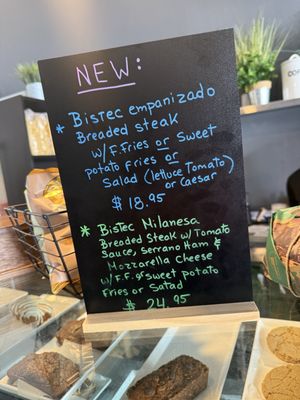 NEW:
* Bistec empanizado
Breaded steak
w/F.Fries or Sweet
potato Fries or
Salad (lettuce Tomato)
or Caesar
$ 18.95
* Bistec Milanesa
Breaded Steak w/Tomato
Sauce, Serrano Ham &
Mozzarella Cheese
w/F.F. or Sweet potato
Fries or Salad
$ 24.95